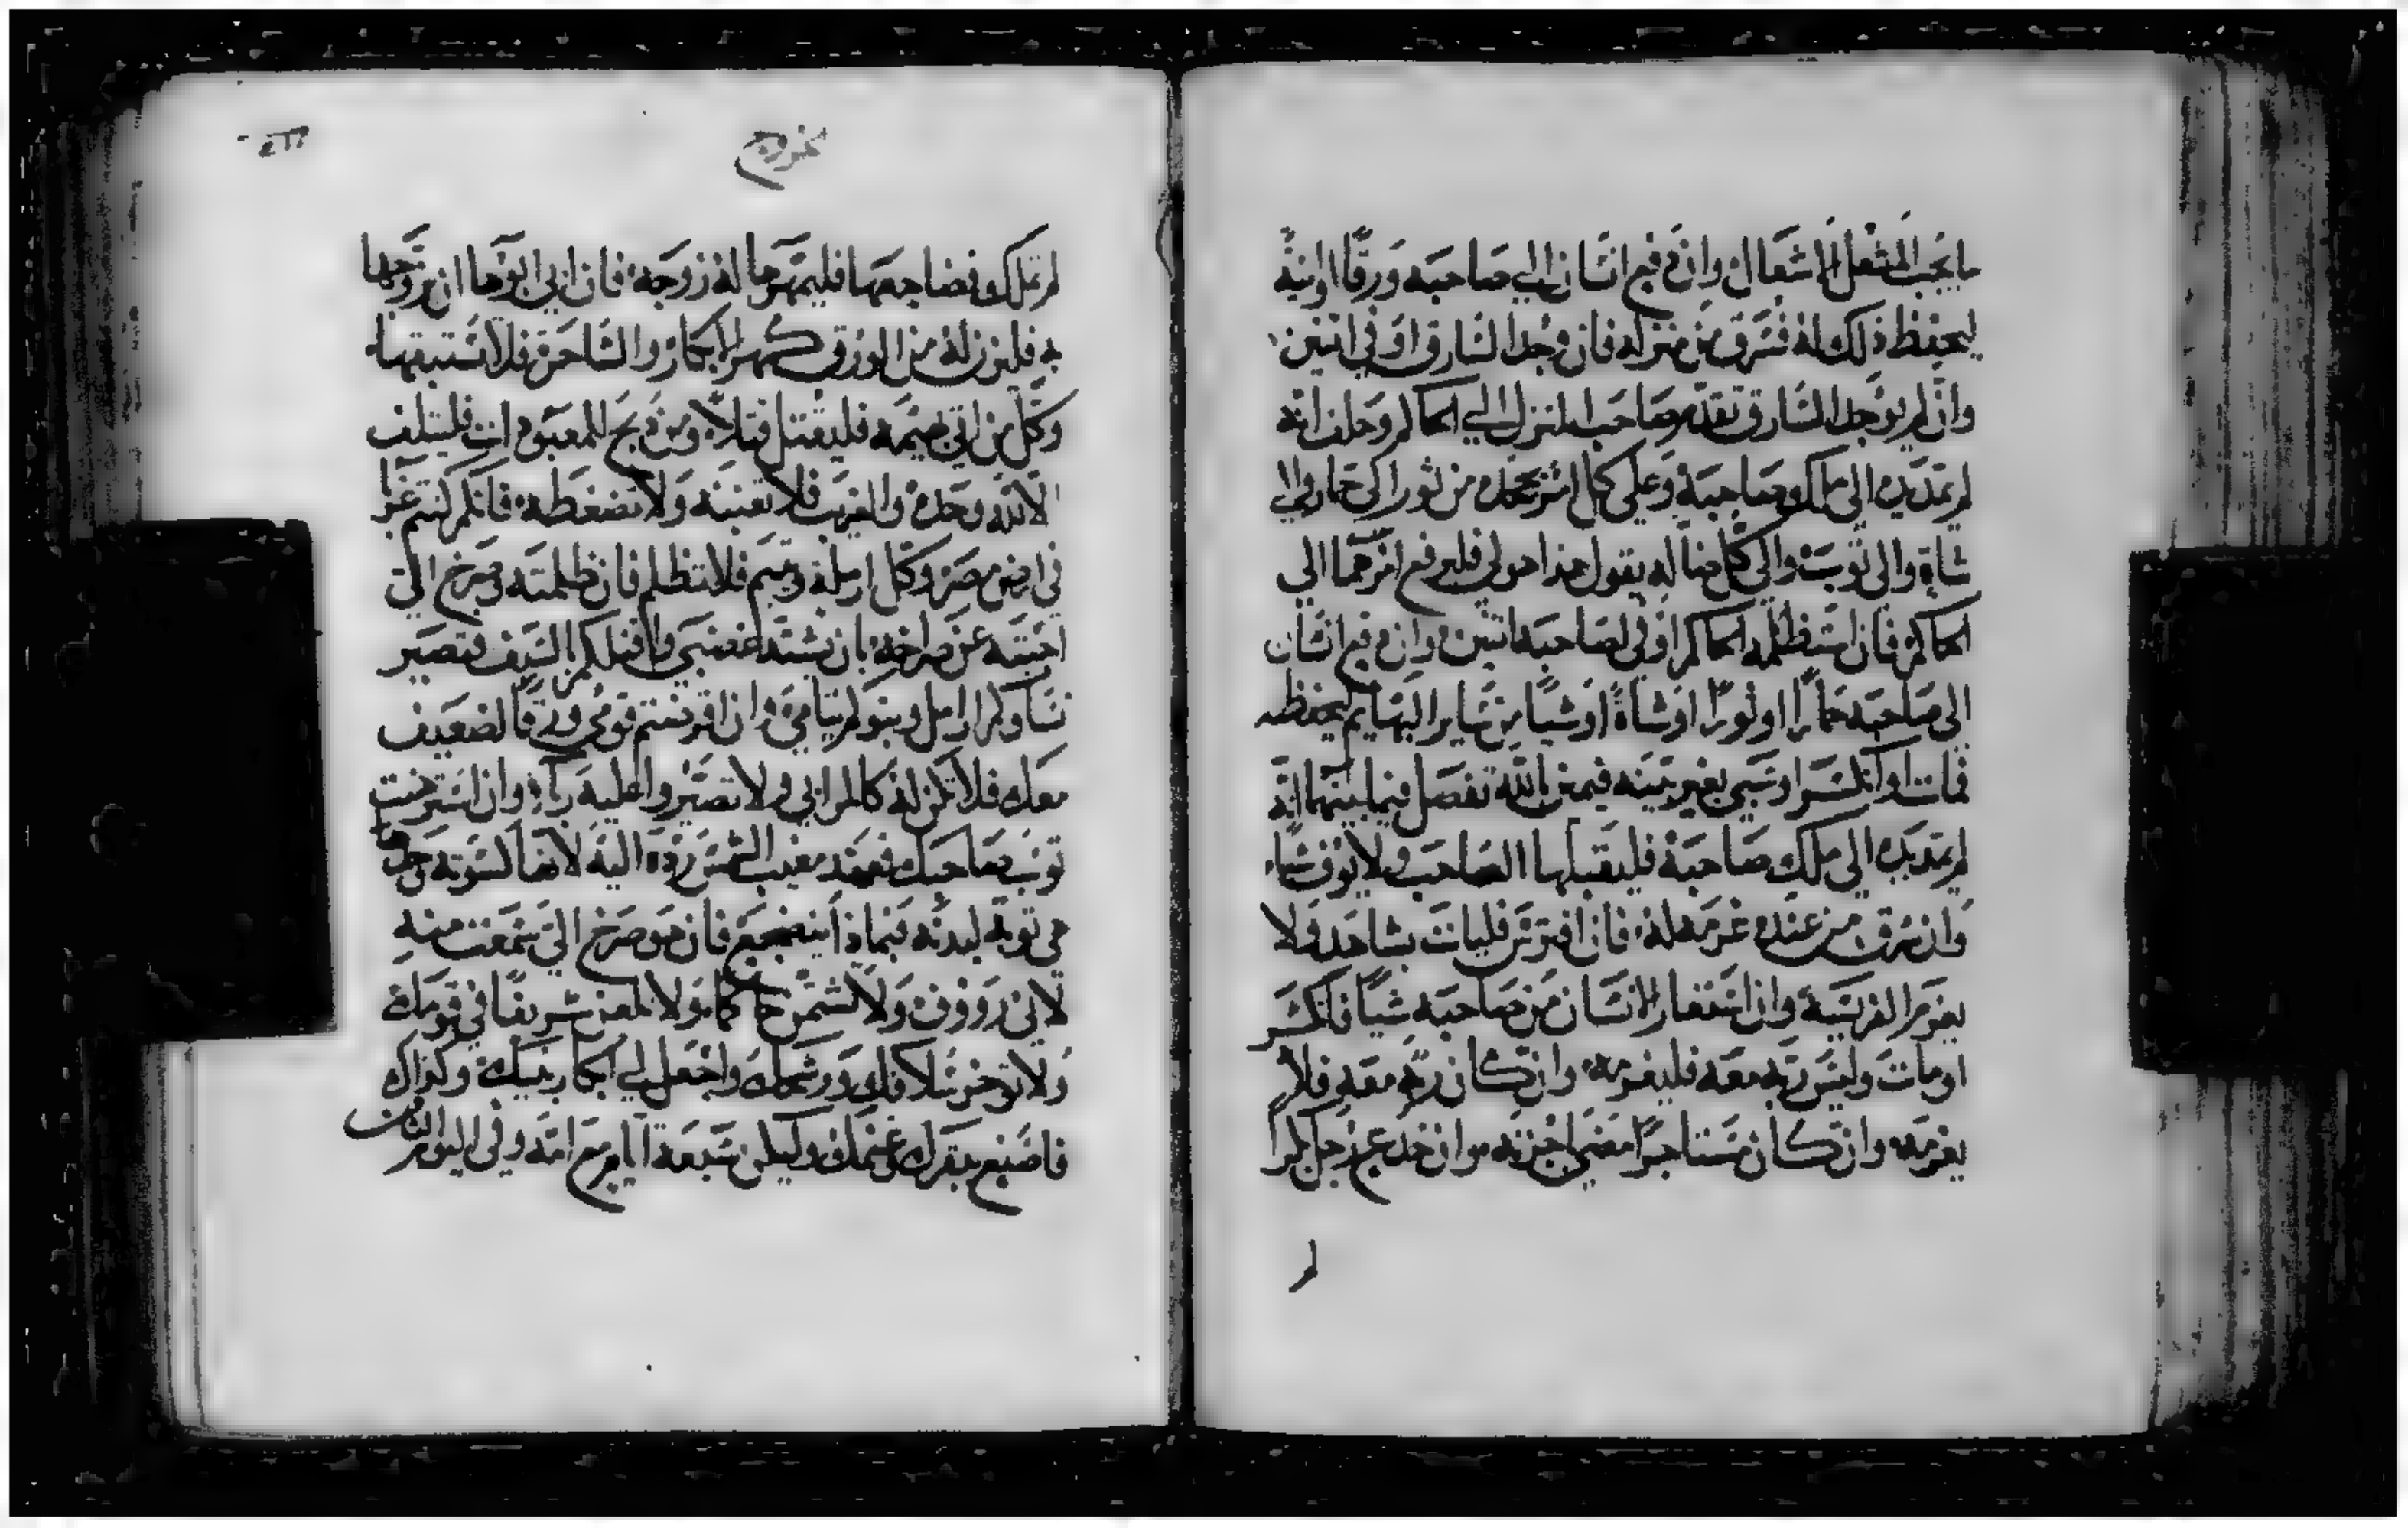 ما يجب المشعل الاشعال وان دفع انسان الي صاحبه ورقا او انية
ليحفظ ذلك له فسرق من منزله فان وجد السارق اوفي اثنين
وان لم يوجد السارق تقدم صاحب المنزل الي الحاكم وحلف انه
لم تمتد يده الى ملك صاحبه وعلى كل امر يجحده من ثور الى حمار والى
شاة والى ثوب والى كل ضالة يقول هذا هو لي فليرفع امرهما الى
الحاكم فان استظلمه الحاكم اوفى لصاحبه اثنين وان دفع انسان
الى صاحبه حمارا او ثورا او شاة او شيا من ساير البهايم ليحفظه
فمات او انكسر او سبي بغير بينه فيمين بالله تفصل فيما بينهما انه
لم تمتد يده الي ملك صاحبه فليقبلها الصاحب ولا يوف شيا
وان سرق من عنده غرمه له فان افترس فليات بشاهد ولا
يغرم الفريسة وان استعار الانسان من صاحبه شيا فانكسر
او مات وليس ربه معه فليغرمه وان كان ربه معه فلا
يغرمه وان كان مستاجرا مضى اجرته وان خدع رجل بكرا
لم
خروج
لم تملك فضاجعها فليمهرها له زوجة فان ابى ابوها ان يزوجها
به فليزن له من الورق كمهر الابكار والساحرة فلا تستبقها
وكل من اتى بهيمة فليقتل قتلا ومن ذبح للمعبودات فليتلف
الا لله وحده والغريب فلا تغبنه ولا تضغطه فانكم كنتم غربا
في ارض مصر وكل ارملة ويتيم فلا تظلم فان ظلمته وصرخ الي
اجبته عن صراخه بان يشتد غضبي واقتلكم بالسيف فتصير
نساوكم ارامل وبنوكم يتامى وان اقرضتم قومي ورقا لضعيف
معك فلا تكن له كالمرابي ولا تصيروا عليه ربا وان استرهنت
ثوب صاحبك فعند مغيب الشمس رده اليه لانها كسوته وحدها
هي ثوبه لبدنه فبماذا ينضجع فان هو صرخ الي سمعت منه
لاني رووف ولا تشتمن حاكما ولا تلعن شريفا في قومك
ولا توخر سلافك ورشمك واجعل لي ابكار بنيك وكذاك
فاصنع ببقرك وغنمك وليكن سبعة ايام مع امه وفي اليوم الثامن